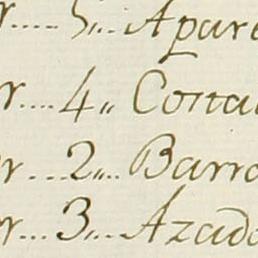 r..... 5... Apare
r.... 4,, Costa
r... 2,,.. Barra
r... 3,... Azado